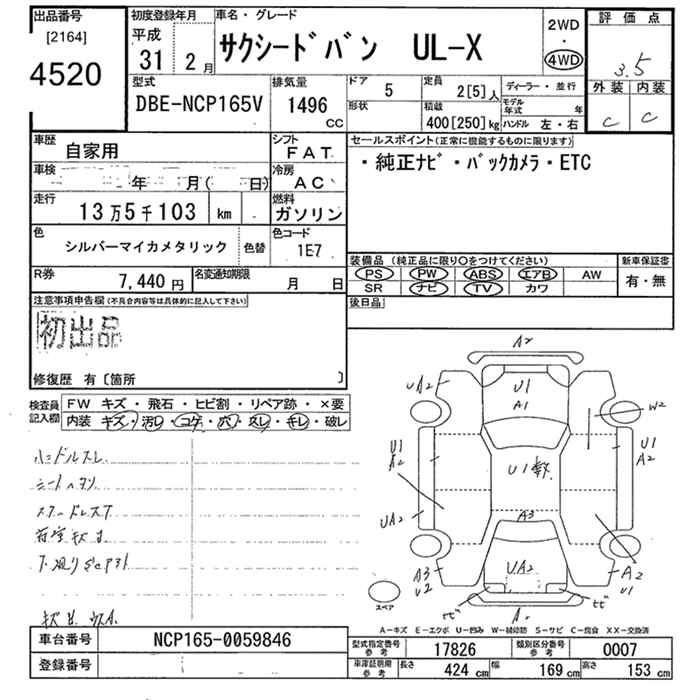 出品番号 初度登録年月 車名・グレード 評価点
[2164] 平成 サクシードバン UL-X 2WD
4520 31年 2月 ・ 4WD 3.5
型式 排気量 ドア 5 定員 2[5]人 ディーラー・並行 外装 内装
DBE-NCP165V 1496 CC 形状 積載 400[250]kg モデル年式 年 C C
ハンドル 左・右
車歴 自家用 シフト FAT セールスポイント(正常に機能するものに限ります)
車検 年 月( 日) 冷房 AC ・純正ナビ・バックカメラ・ETC
走行 13万5千103 km 燃料 ガソリン
色 シルバーマイカメタリック 色替 色コード 1E7
装備品 (純正品に限り○をつけてください) 新車保証書
R券 7,440円 名変通知期限 月 日 PS PW ABS エアB AW 有・無
SR ナビ TV カワ
注意事項申告欄(不具合内容等は具体的に記入して下さい) 後日品
初出品
修復歴 有〔箇所 〕
検査員記入欄 FW キズ・飛石・ヒビ割・リペア跡・×要
内装 キズ・汚レ・コゲ・穴・スレ・キレ・破レ
ハンドルスレ
A2
UA2 U1 A1 W2
U1 A2 U1 U1 A2
UA2 A3
A3 U2 UA2 A2 U1
スペア
A-キズ E-エクボ U-凹み W-補修跡 S-サビ C-腐食 XX-交換済
車台番号 NCP165-0059846 型式指定番号 参考 17826 類別区分番号 参考 0007
登録番号 車庫証明用 参考 長さ 424 cm 幅 169 cm 高さ 153 cm